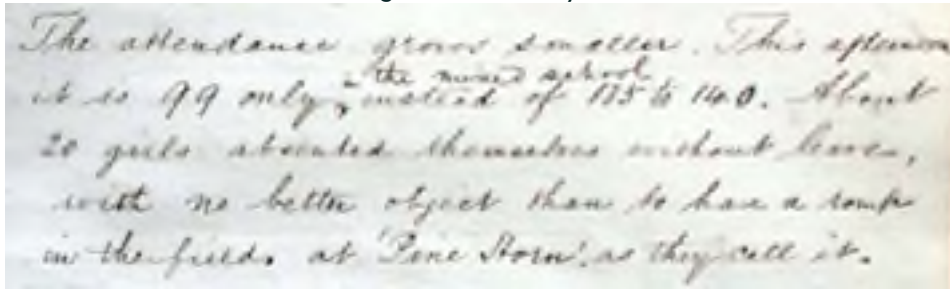 The attendance grows smaller. This afternoon
it is 99 only in the mixed school instead of 135 to 140. About
20 girls absented themselves without leave,
with no better object than to have a romp
in the fields at 'Pine Horn', as they call it.